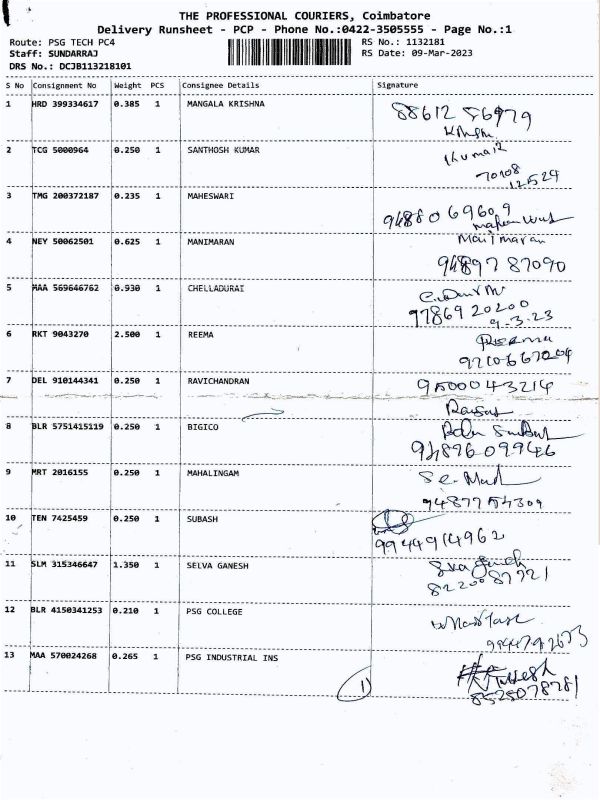 THE PROFESSIONAL COURIERS, Coimbatore
Delivery Runsheet - PCP - Phone No.:0422-3505555 - Page No.:1
Route: PSG TECH PC4
RS No.: 1132181
Staff: SUNDARRAJ
RS Date: 09-Mar-2023
DRS No.: DCJB113218101
S No Consignment No Weight PCS Consignee Details Signature
1 HRD 399334617 0.385 1 MANGALA KRISHNA
88612 56979
2 TCG 5000964 0.250 1 SANTHOSH KUMAR
Kumar
70108
12524
3 TMG 200372187 0.235 1 MAHESWARI
948806 9609
4 NEY 50062501 0.625 1 MANIMARAN
Manimaran
94897 87090
5 MAA 569646762 0.930 1 CHELLADURAI
9786920200
9-3-23
6 RKT 9043270 2.500 1 REEMA
Reema
7 DEL 910144341 0.250 1 RAVICHANDRAN
9500043214
8 BLR 5751415119 0.250 1 BIGICO
9489609946
9 MRT 2016155 0.250 1 MAHALINGAM
9487754309
10 TEN 7425459 0.250 1 SUBASH
9944914962
11 SLM 315346647 1.350 1 SELVA GANESH
8220087721
12 BLR 4150341253 0.210 1 PSG COLLEGE
13 MAA 570024268 0.265 1 PSG INDUSTRIAL INS
8525078781
1)